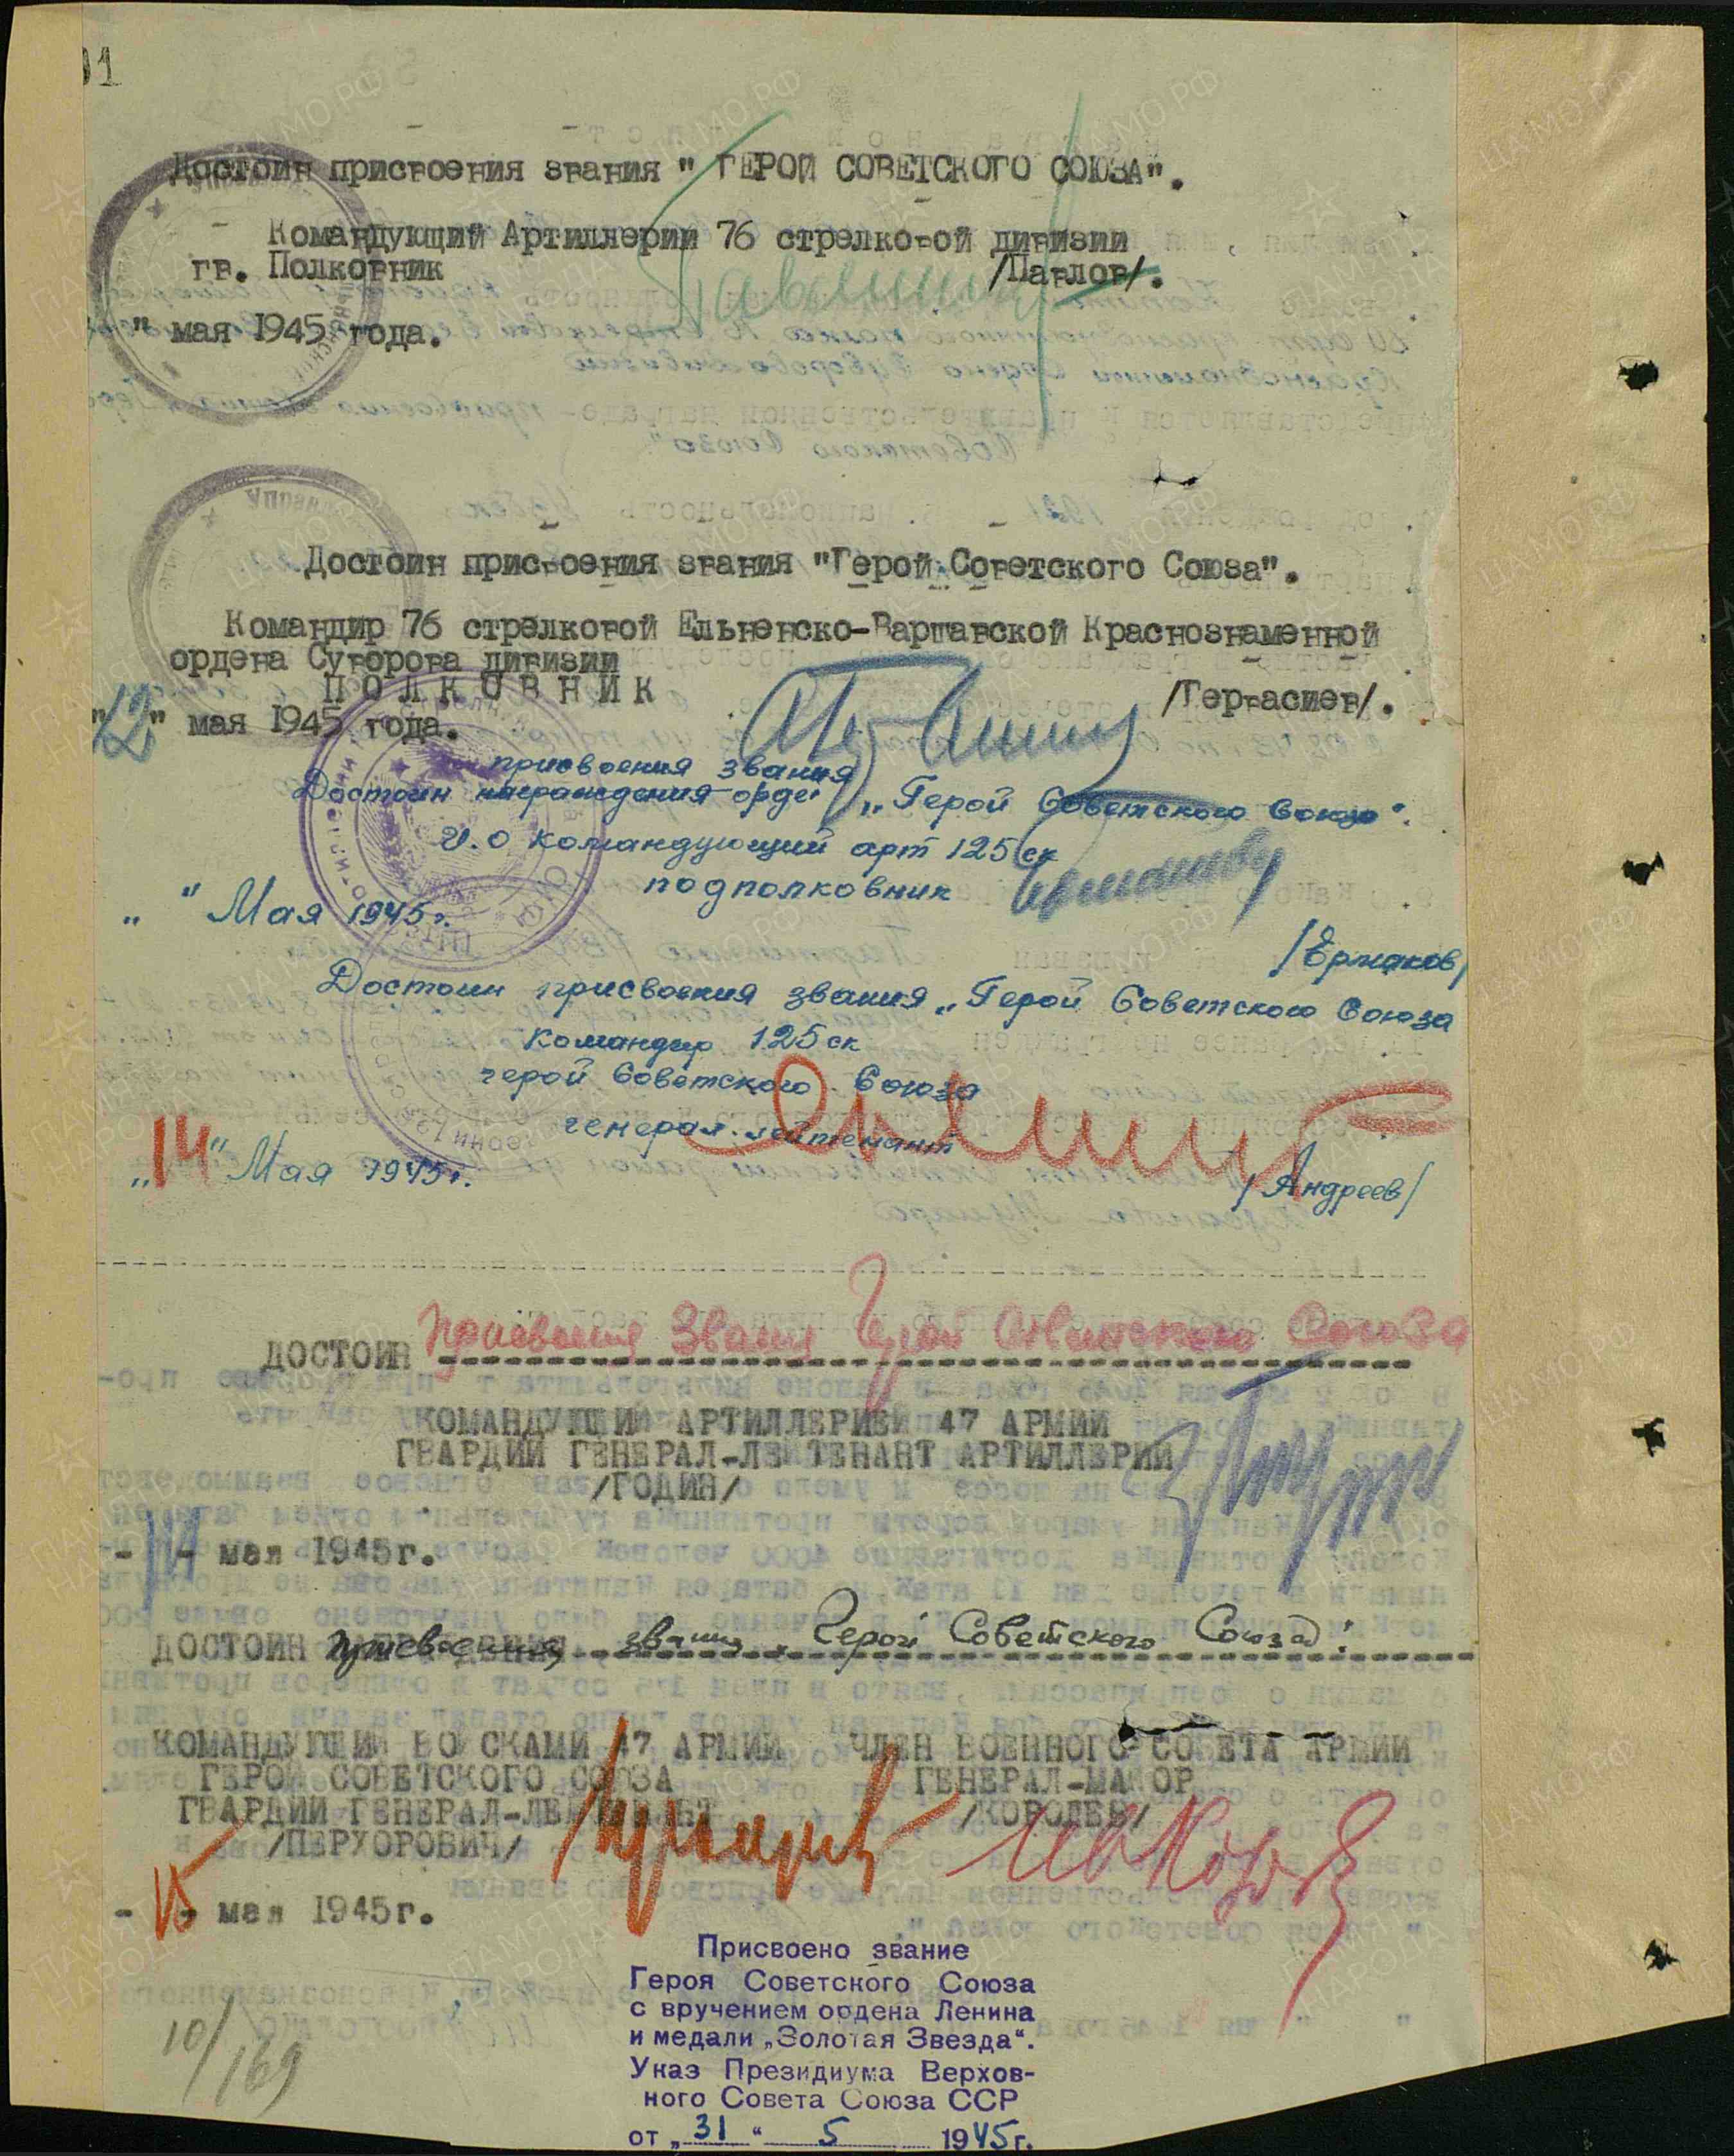 Достоин присвоения звания " ГЕРОЙ СОВЕТСКОГО СОЮЗА".
Командующий Артиллерии 76 стрелковой дивизии
гв. Полковник /Павлов/.
" мая 1945 года.
Достоин присвоения звания "Герой Советского Союза".
Командир 76 стрелковой Ельненско-Варшавской Краснознаменной
ордена Суворова дивизии
ПОЛКОВНИК /Гервасиев/.
"12" мая 1945 года.
присвоения звания
Достоин награждения орде „Герой Советского Союза".
И.О командующий арт 125 ск
подполковник
„ " Мая 1945г.
/Ермаков/
Достоин присвоения звания „Герой Советского Союза
Командир 125 ск
герой Советского Союза
генерал-лейтенант
„14" Мая 1945г.
/Андреев/
ДОСТОИН присвоения звания Герой Советского Союза
КОМАНДУЮЩИЙ АРТИЛЛЕРИЕЙ 47 АРМИИ
ГВАРДИИ ГЕНЕРАЛ-ЛЕЙТЕНАНТ АРТИЛЛЕРИИ
/ГОДИН/
-14- мая 1945г.
ДОСТОИН присвоения звания „Герой Советского Союза".
КОМАНДУЮЩИЙ ВОЙСКАМИ 47 АРМИИ ЧЛЕН ВОЕННОГО СОВЕТА АРМИИ
ГЕРОЙ СОВЕТСКОГО СОЮЗА ГЕНЕРАЛ-МАЙОР
ГВАРДИИ ГЕНЕРАЛ-ЛЕЙТЕНАНТ /КОРОЛЕВ/
/ПЕРХОРОВИЧ/
-15- мая 1945г.
Присвоено звание
Героя Советского Союза
с вручением ордена Ленина
и медали „Золотая Звезда".
Указ Президиума Верхов-
ного Совета Союза ССР
от „31" 5 1945г.
10/169